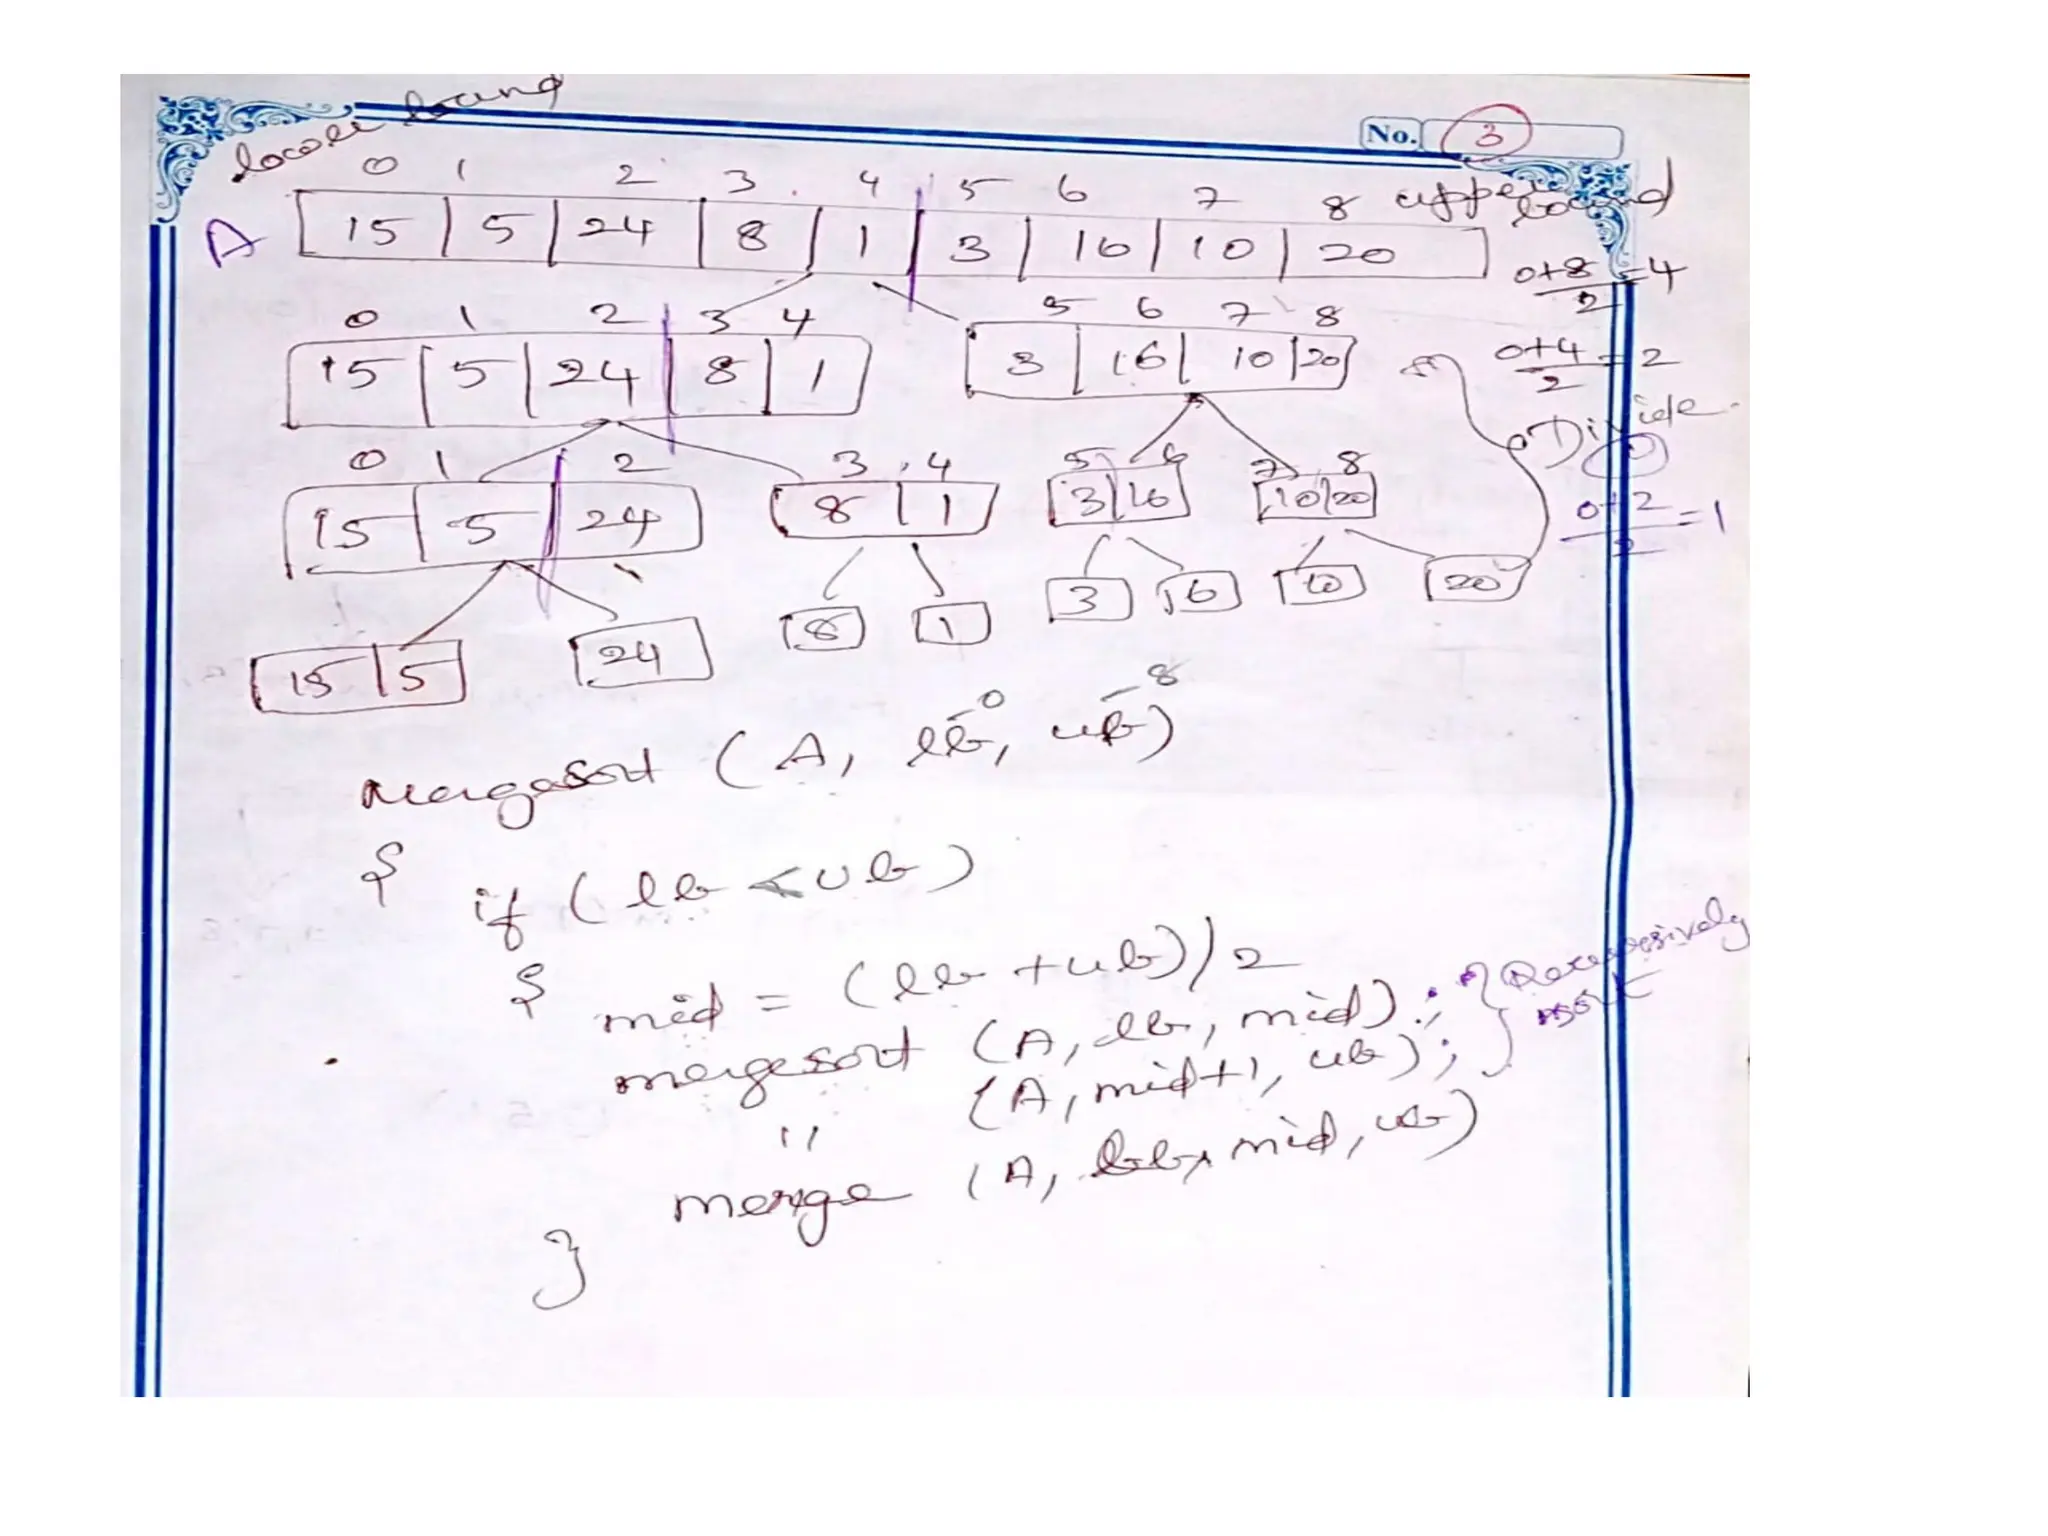 lower bound
No. 3
0 1 2 3 4 5 6 7 8 upper bound
A 15 5 24 8 1 3 16 10 20
0+8/2 = 4
0 1 2 3 4 5 6 7 8
15 5 24 8 1 3 16 10 20
0+4/2 = 2
Divide
0 1 2 3 4 5 6 7 8
15 5 24 8 1 3 16 10 20
0+2/2 = 1
8 1 3 16 10 20
15 5 24
0 8
Mergesort (A, lb, ub)
{
if (lb < ub)
{
mid = (lb + ub)/2
mergesort (A, lb, mid);
" (A, mid+1, ub);
sort
merge (A, lb, mid, ub)
}